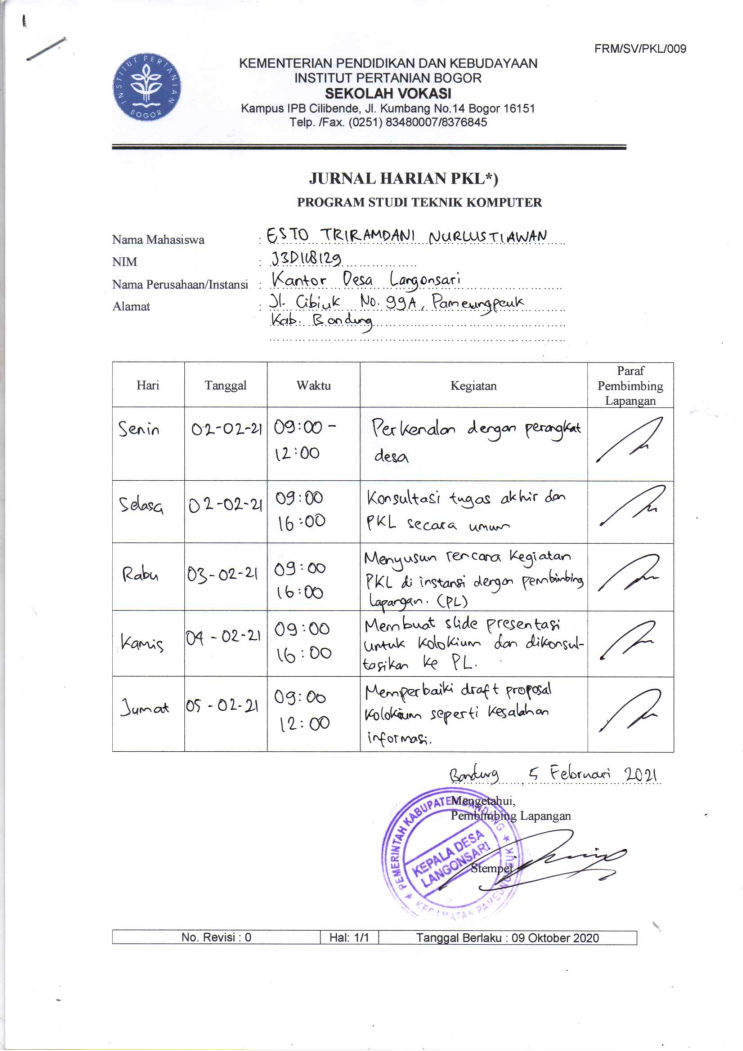 1
FRM/SV/PKL/009
INSTITUT PERTANIAN
BOGOR
KEMENTERIAN PENDIDIKAN DAN KEBUDAYAAN
INSTITUT PERTANIAN BOGOR
SEKOLAH VOKASI
Kampus IPB Cilibende, Jl. Kumbang No.14 Bogor 16151
Telp. /Fax. (0251) 83480007/8376845
JURNAL HARIAN PKL*)
PROGRAM STUDI TEKNIK KOMPUTER
Nama Mahasiswa : ESTO TRIRAMDANI NURLUSTIAWAN
NIM : J3D118129
Nama Perusahaan/Instansi : Kantor Desa Langonsari
Alamat : Jl. Cibiuk No. 99A, Pameungpeuk
Kab. Bandung
Hari Tanggal Waktu Kegiatan Paraf
Pembimbing
Lapangan
Senin 02-02-21 09:00 -
12:00
Perkenalan dengan perangkat
desa
Selasa 02-02-21 09:00
16:00
Konsultasi tugas akhir dan
PKL secara umum
Rabu 03-02-21 09:00
16:00
Menyusun rencana kegiatan
PKL di instansi dengan pembimbing
lapangan. (PL)
Kamis 04-02-21 09:00
16:00
Membuat slide presentasi
untuk kolokium dan dikonsul-
tasikan ke PL.
Jumat 05-02-21 09:00
12:00
Memperbaiki draft proposal
kolokium seperti kesalahan
informasi.
Bandung, 5 Februari 2021
Mengetahui,
Pembimbing Lapangan
Stempel
PEMERINTAH KABUPATEN BANDUNG
KEPALA DESA
LANGONSARI
KECAMATAN PAMEUNGPEUK
No. Revisi : 0 Hal: 1/1 Tanggal Berlaku : 09 Oktober 2020